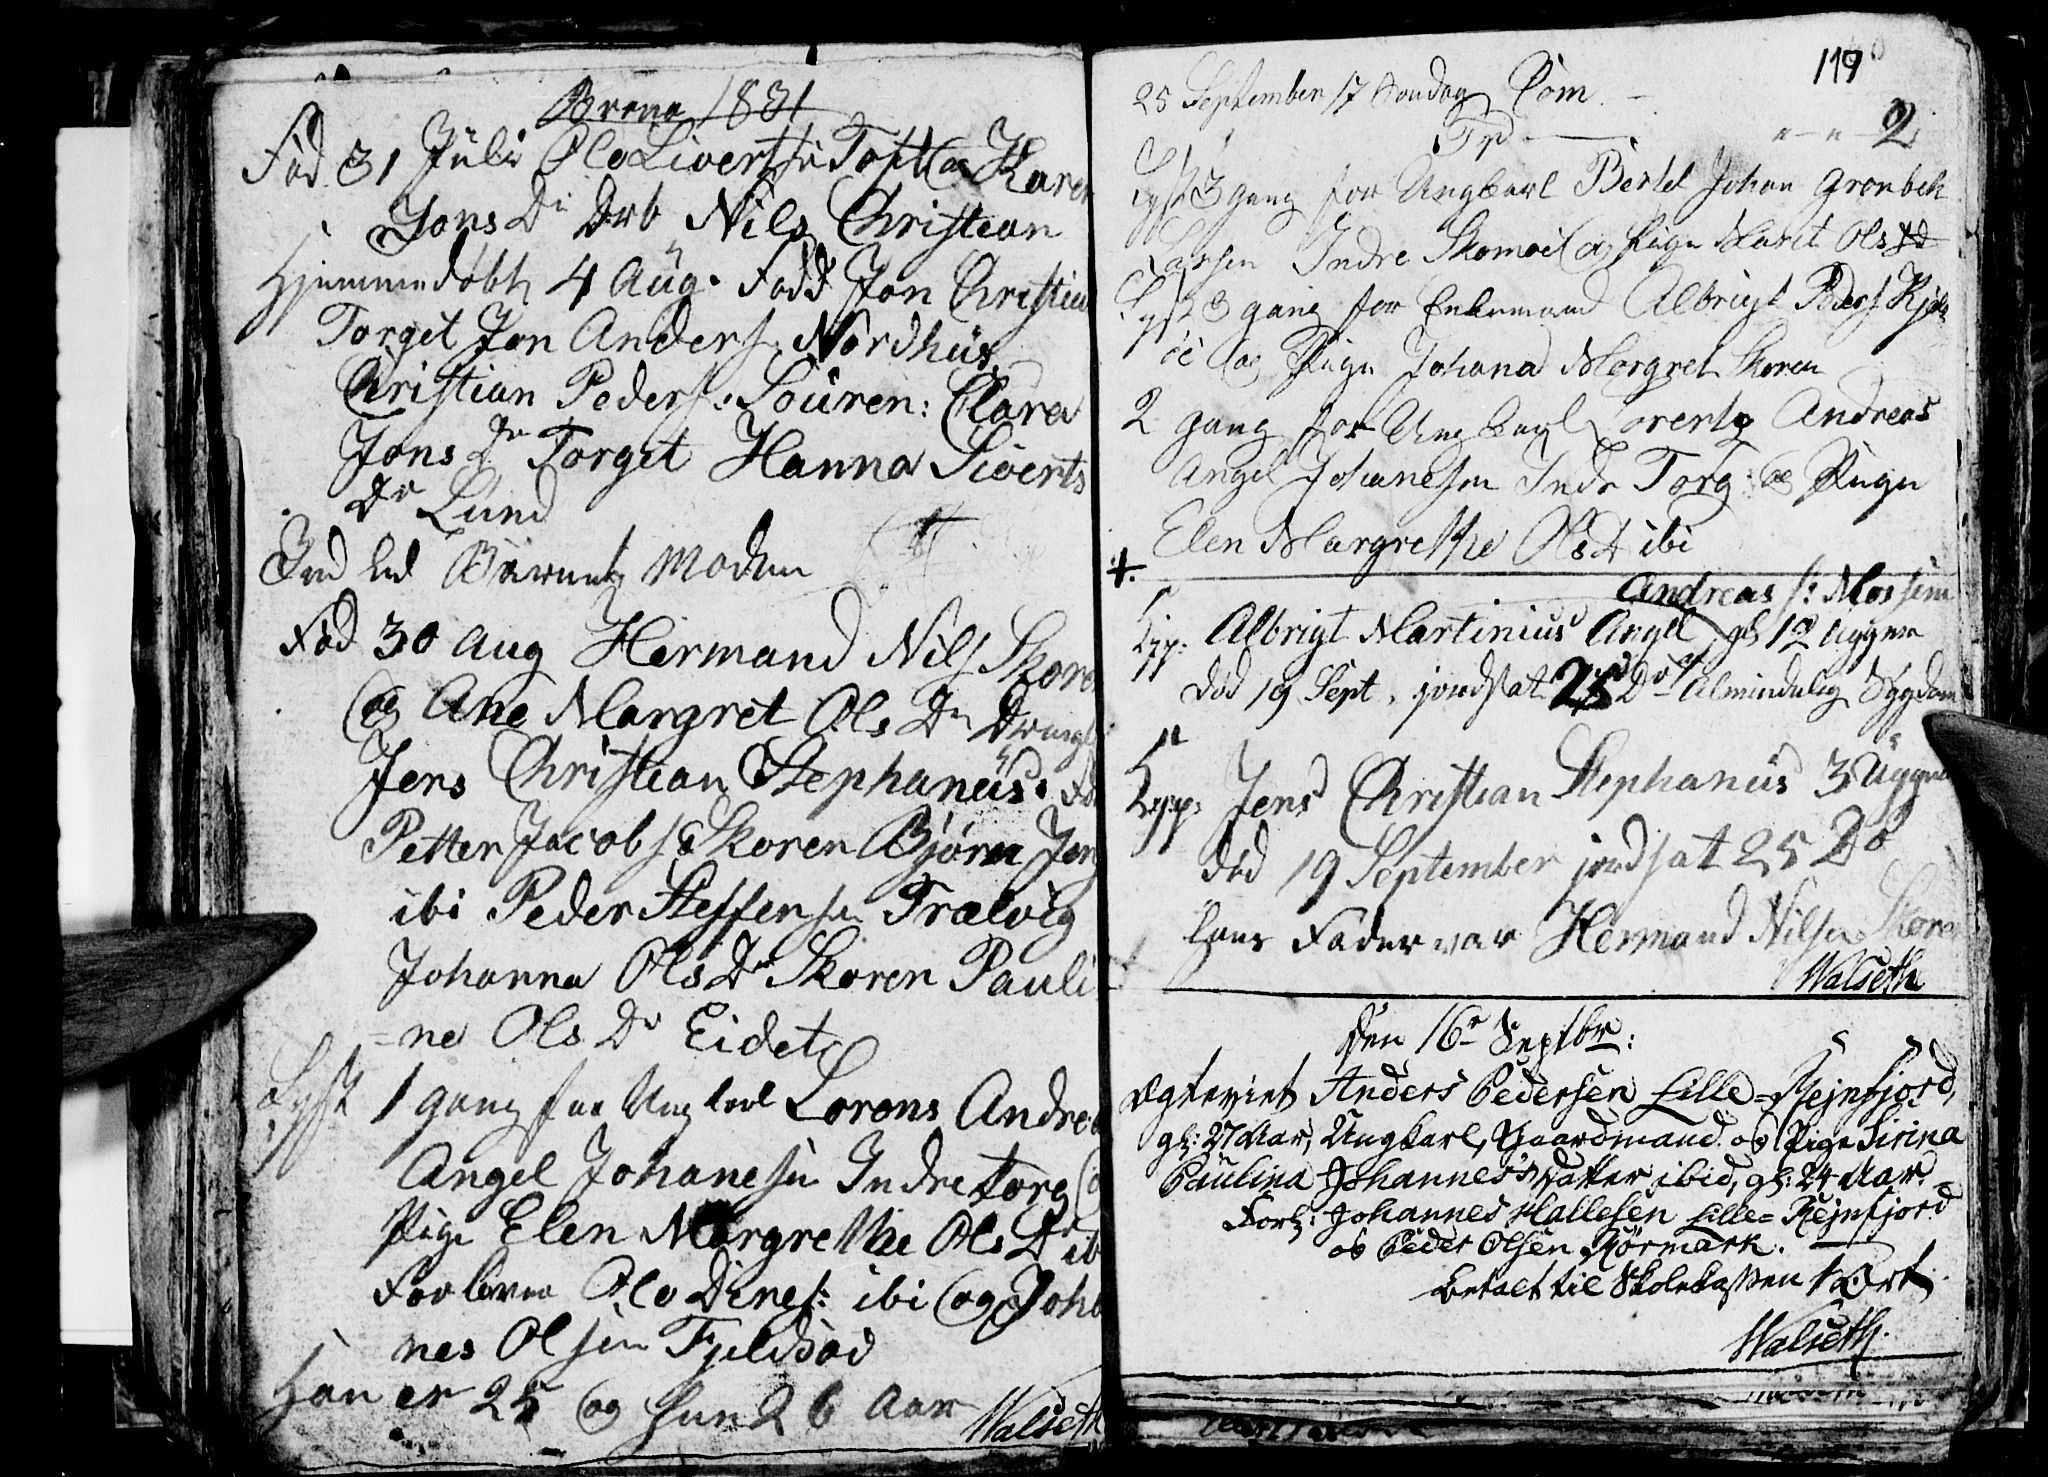 Brønø 1831
Fød 31 Juli Ole Sivertsen Toft og Karen
Jons Dr Drb Nils Christian
Hjemmedøbt 4 Aug. Fadd Jon Christian
Torget Jon Anders: Nordhus
Christian Peders: Souren: Clara
Jons Dr Torget Hanna Siverts
Dr Lund
Ind led Barnets Moder
Fød 30 Aug Hermand Nils Skoren
og Ane Margret Ols Dr Drengb
Jens Christian Stephanus. Fad
Petter Jacobs Skoren Bjørn Jens
ibi Peder Steffensen Trælvig
Johanna Ols Dr Skoren Pauli
=ne Ols Dr Eidet
Lyst 1 gang for Ungkarl Lorens Andrea
Angel Johanesen Indre Torg og
Pige Elen Margrethe Ols Dr ib
Forlover Ole Dines: ibi og Joha
nes Olsen Fjeldsøe
Han er 25 og hun 26 Aar
Walseth
119
25 September 17 Søndag Com
Tp 2
Lyst 3 gang for Ungkarl Bertel Johan Grønbek
Larsen Indre Skomoe og Pige Marit Ols D
Lyst 3 gang for Enkemand Albrigt Peders Kjels
øe og Pige Johana Margret Skoren
2 gang for Ungkarl Lorentz Andreas
Angel Johanesen Indr Torg: og Pige
Elen Margrethe Ols D ibi
Andreas s: Mosheim
Kpp: Albrigt Martinius Angel gl 12 Uggeer
død 19 Sept. jordsat 25 Do af Almindelig Sygdom
Kpp: Jens Christian Stephanus 3 Ugger
død 19 September jordsat 25 Do
hans Fader var Hermand Nilsen Skoren
Walseth
Den 16de Septbr:
Ægteviet Anders Pedersen Lille=Rejnfjord,
gl: 27 Aar, Ungkarl, Gaardmand og Pige Sirina
Paulina Johannesdatter ibid, gl: 24 Aar.
Forl: Johannes Hallesen Lille=Rejnfjord
og Peder Olsen Hørmark.
Betalt til Skolekassen 1 Ort
Walseth.